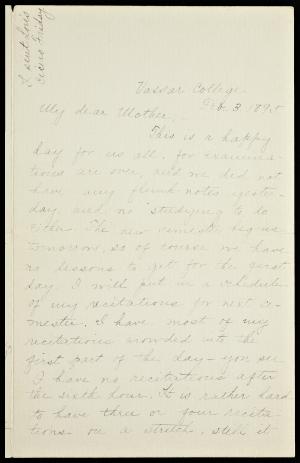 I sent Lou's
Vassar College.
Feb. 3 1895
My dear Mother,-
This is a happy
day for us all, for examina-
tions are over, and we did not
have any flunk notes yester-
day, and no studying to do
either. The new semester begins
tomorrow, so of course we have
no lessons to get for the first
day. I will put in a schedule
of my recitations for next se-
mester. I have most of my
recitations crowded into the
first part of the day - you see
I have no recitations after
the sixth hour. It is rather hard
to have three or four recita-
tions on a stretch, still it